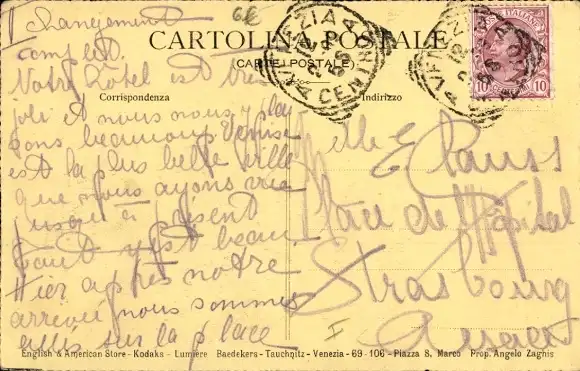 Changement
complet.
Notre hôtel est très
joli et nous nous y plai
sons beaucoup. Venise
est la plus belle ville
que nous ayons vue
jusqu'à présent
Tout y est beau
Hier après notre
arrivée nous sommes
allés sur la place
CARTOLINA POSTALE
(CARTE POSTALE)
Corrispondenza
Indirizzo
VENEZIA
CENTRO
VENEZIA
POSTE ITALIANE
10 10
Mlle E
Place de l'Hôpital
Strasbourg
Alsace
I
English & American Store - Kodaks - Lumiere Baedekers - Tauchnitz - Venezia - 69 - 106 - Piazza S. Marco Prop. Angelo Zaghis